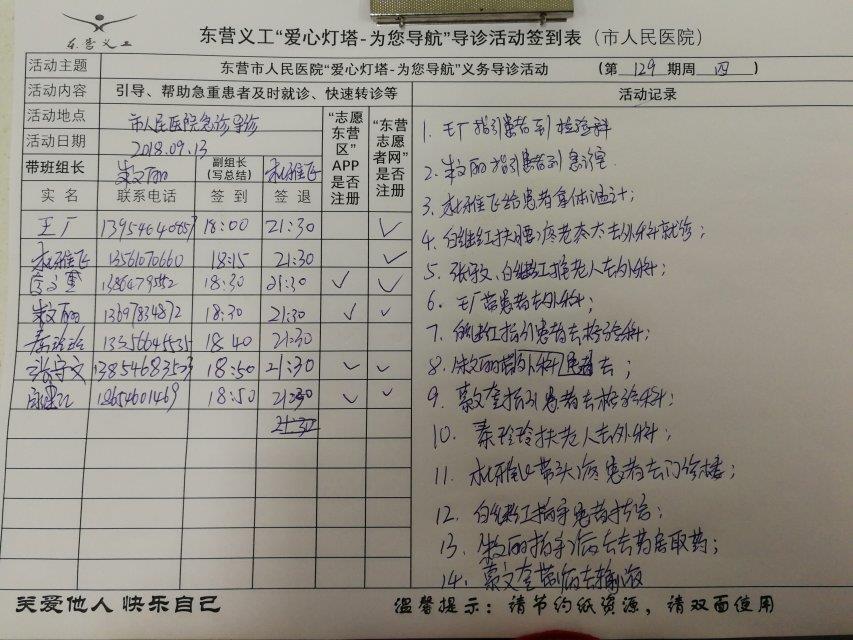 东营义工
东营义工“爱心灯塔-为您导航”导诊活动签到表（市人民医院）
活动主题 东营市人民医院“爱心灯塔-为您导航”义务导诊活动 （第 129 期周 四 ）
活动内容 引导、帮助急重患者及时就诊、快速转诊等 活动记录
活动地点 市人民医院急诊导诊
活动日期 2018.09.13
带班组长 朱文丽 副组长（写总结） 永雅飞
“志愿东营区”APP是否注册
“东营志愿者网”是否注册
实名 联系电话 签到 签退
王广 18:00 21:30 ✓
永雅飞 13561070660 18:15 21:30 ✓
18:30 21:30 ✓ ✓
朱文丽 13697834872 18:30 21:30 ✓ ✓
秦玲玲 18:40 21:30
张守文 13854683503 18:50 21:30 ✓ ✓
18:50 21:30 ✓ ✓
1. 王广指引患者到检验科
2. 朱文丽指引患者到急诊室
3. 永雅飞给患者拿体温计；
4. 白继红扶腰疼老太太去外科就诊；
5. 张守文、白继红推老人去外科；
6. 王广带患者去外科；
7. 白继红指引患者去检验科；
8. 朱文丽指外科患者去；
9. 綦文奎指引患者去检验科；
10. 秦玲玲扶老人去外科；
11. 永雅飞带头疼患者去门诊楼；
12. 白继红指导患者
13. 朱文丽指导病友去药房取药；
14. 綦文奎带病友输液
关爱他人 快乐自己 温馨提示：请节约纸资源，请双面使用